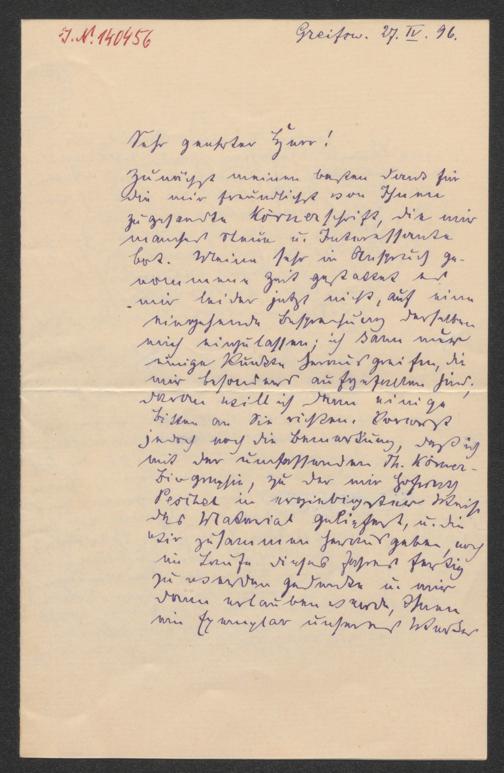 J.N. 140456
Greifsw. 27. IV. 96.
Sehr geehrter Herr!
Zunächst meinen besten Dank für
die mir freundlichst von Ihnen
zugesandte Körnerschrift, die mir
manches Neue u. Interessante
bot. Meine sehr in Anspruch ge-
nommene Zeit gestattet es
mir leider jetzt nicht, auf eine
eingehende Besprechung derselben
mich einzulassen; ich kann nur
einige Punkte herausgreifen, die
mir besonders aufgefallen sind,
daran will ich dann einige
Bitten an Sie richten. Vorerst
jedoch noch die Bemerkung, daß ich
mit der umfassenden Th. Körner-
Biographie, zu der mir Hofrath
Peschel in ergiebigster Weise
das Material geliefert, u. die
wir zusammen herausgeben, noch
im Laufe dieses Jahres fertig
zu werden gedenke u. mir
dann erlauben werde, Ihnen
ein Exemplar unseres Werkes